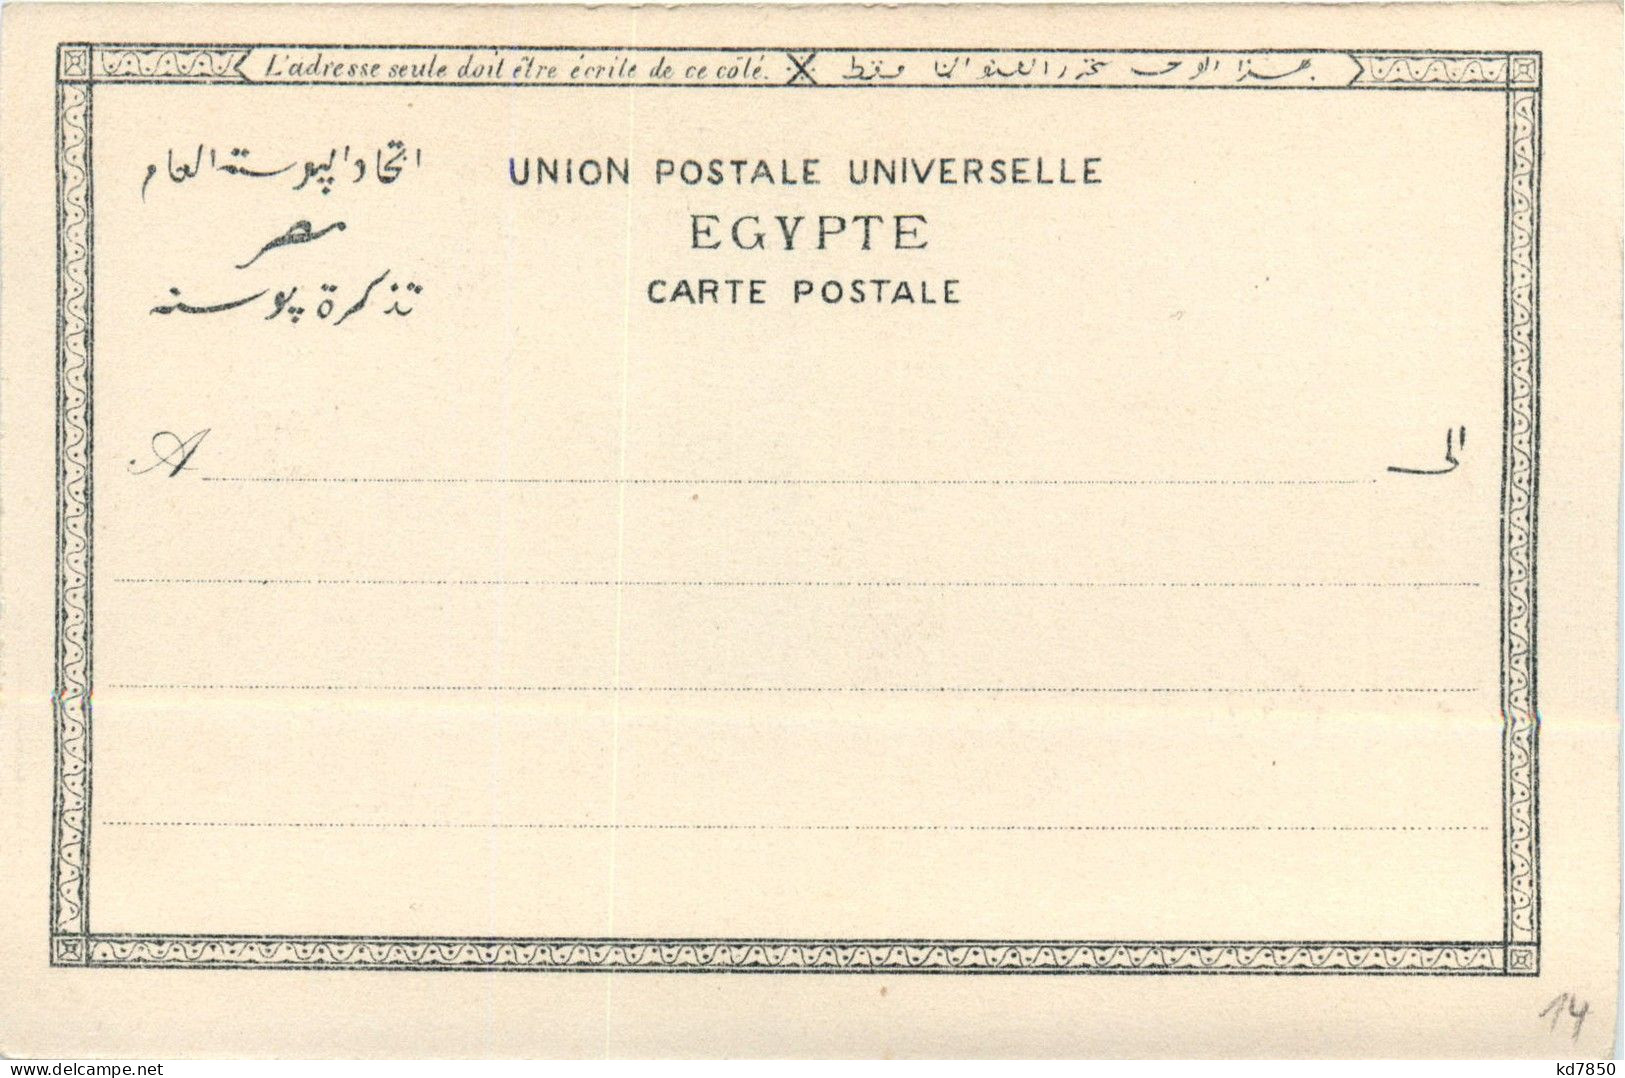 L'adresse seule doit être écrite de ce côté. هذا الوجه تحرر العنوانا فقط
اتحاد الپوسته العام
مصر
تذكرة پوسته
UNION POSTALE UNIVERSELLE
EGYPTE
CARTE POSTALE
A الى
14
kd7850